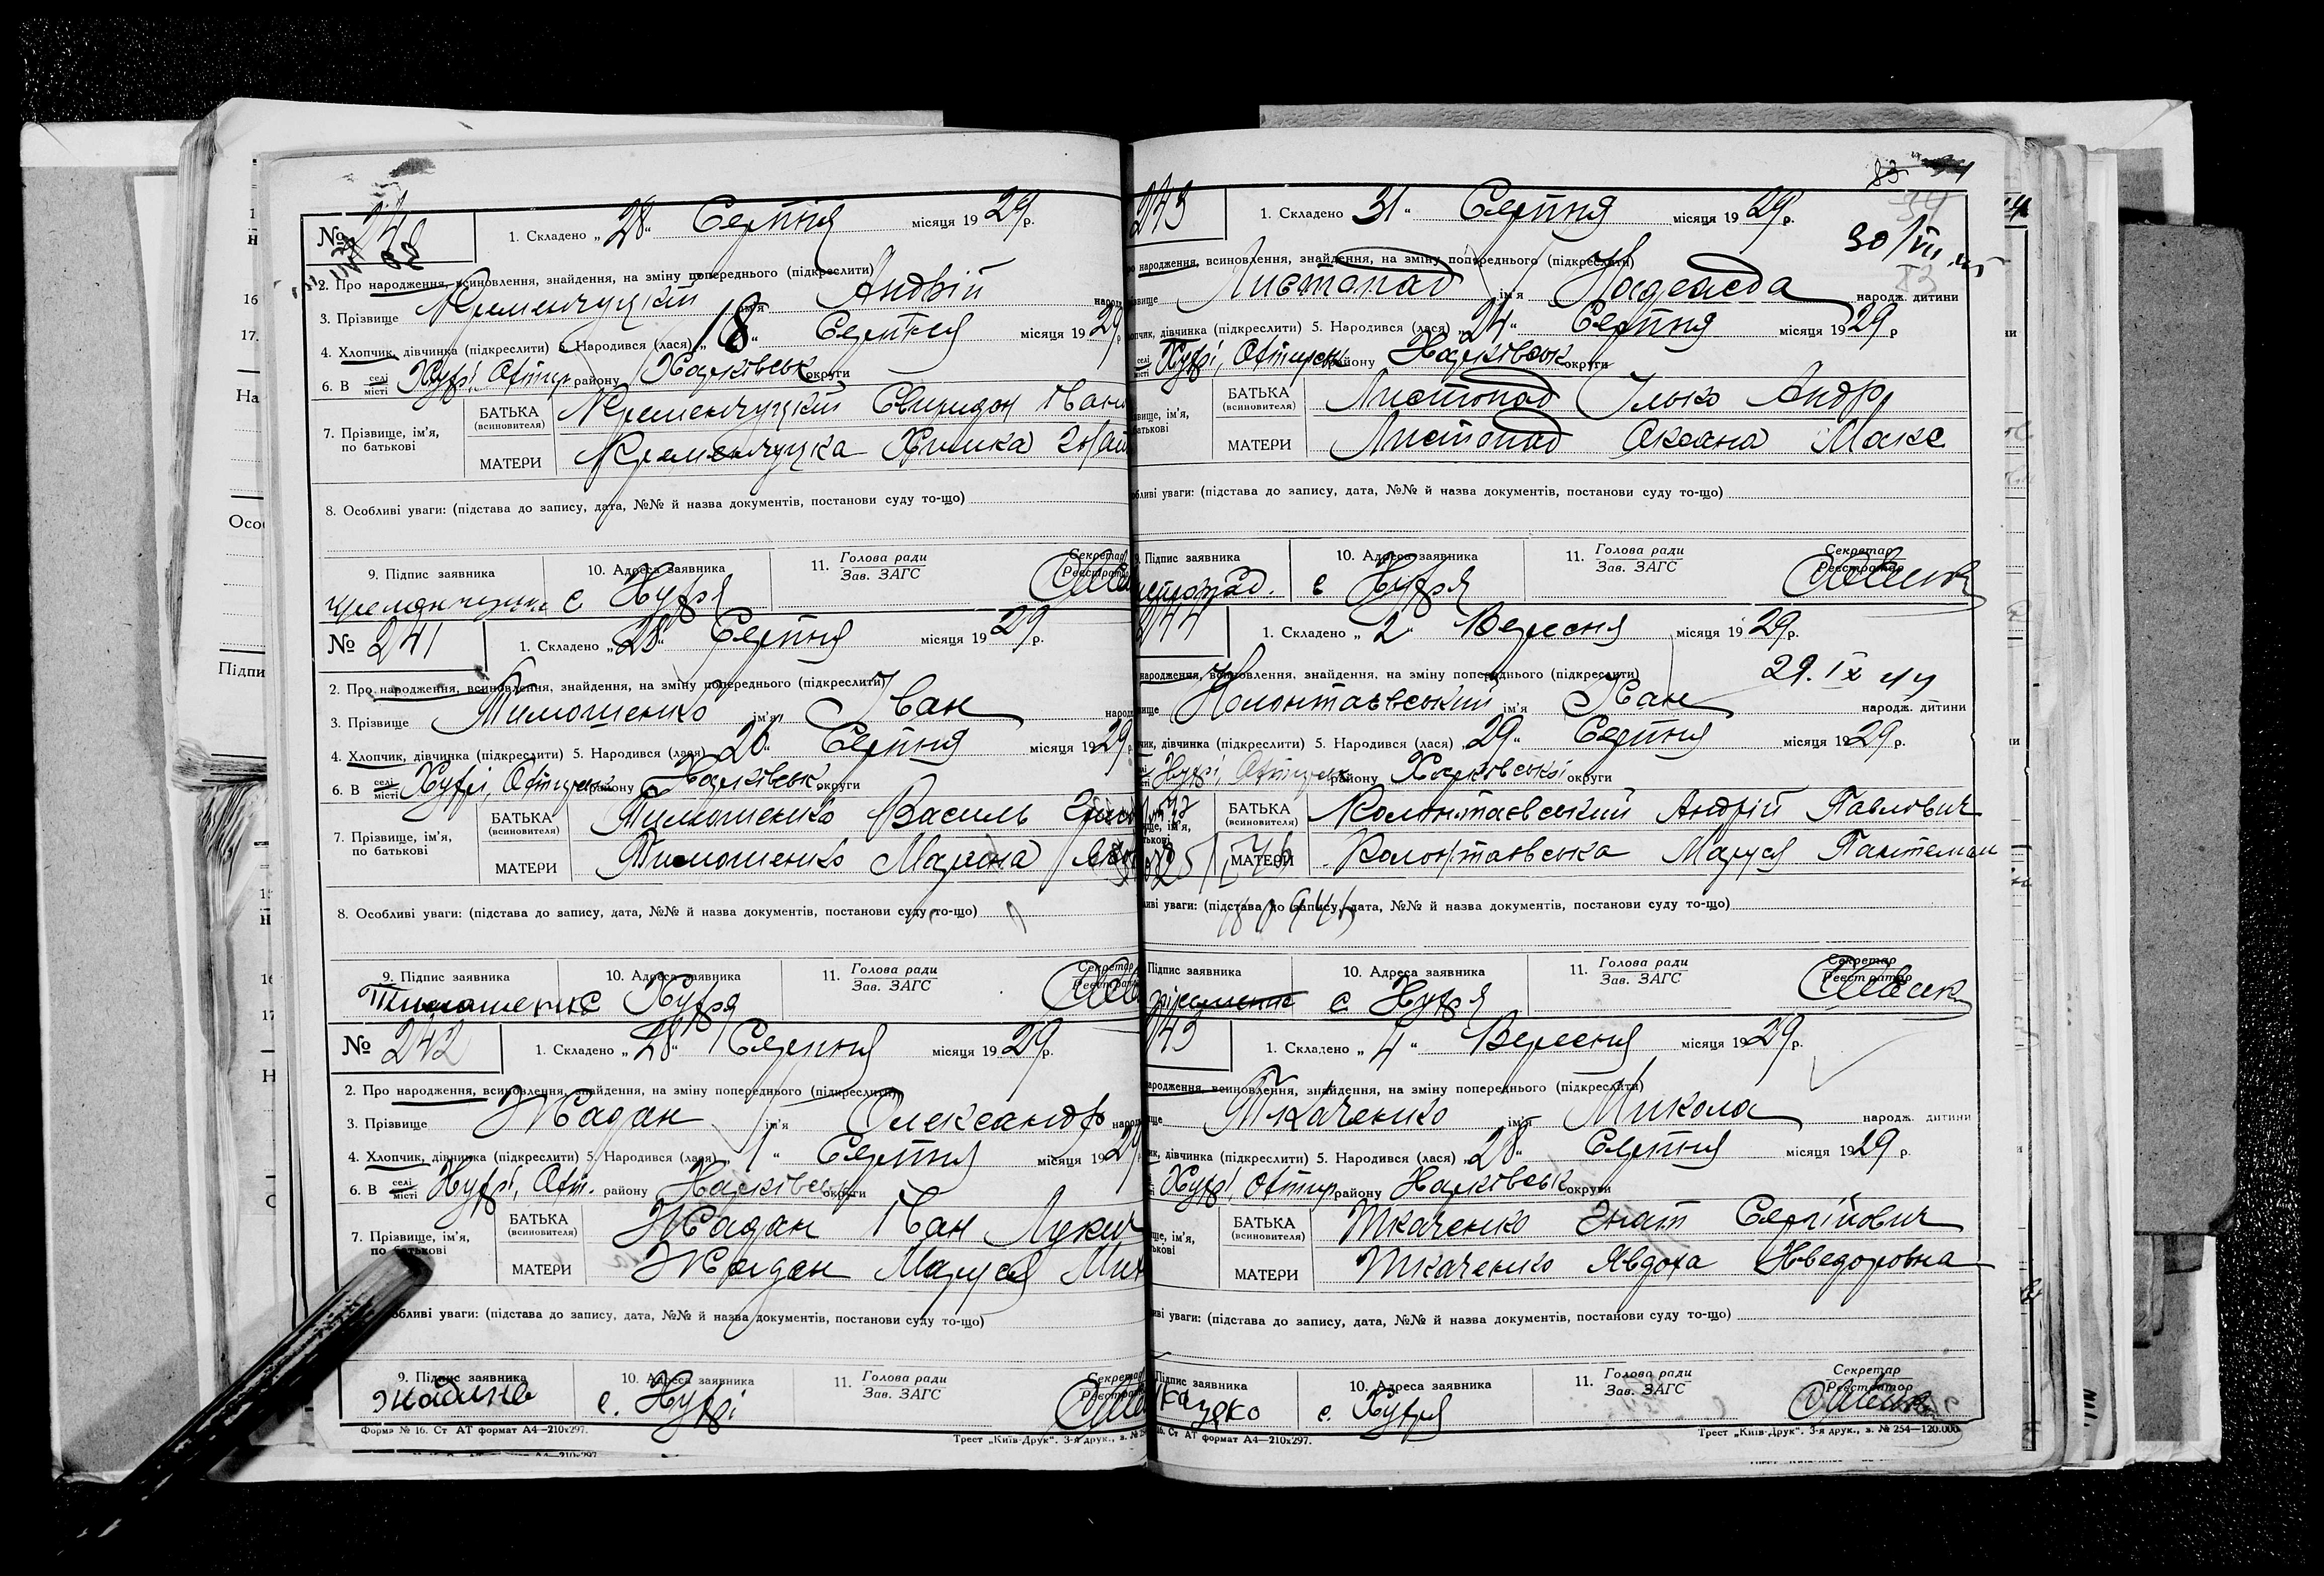 № 240 1. Складено „28“ Серпня місяця 1929 р.
2. Про народження, всиновлення, знайдення, на зміну попереднього (підкреслити)
3. Прізвище Кременчуцкий ім'я Андрій народ
4. Хлопчик, дівчинка (підкреслити) 5. Народився (лася) „18“ Серпня місяця 1929 р
6. В селі місті Хухрі, Охтир району Харківськ округи
7. Прізвище, ім'я, по батькові
БАТЬКА (всиновителя) Кременчуцкий Свиридон Іван
МАТЕРИ Кременчуцка Химка
8. Особливі уваги: (підстава до запису, дата, №№ й назва документів, постанови суду то-що)
9. Підпис заявника 10. Адреса заявника 11. Голова ради Зав. ЗАГС Секретар Реєстратор
с Хухря
№ 241 1. Складено „28“ Серпня місяця 1929 р.
2. Про народження, всиновлення, знайдення, на зміну попереднього (підкреслити)
3. Прізвище Тимошенко ім'я Іван народ
4. Хлопчик, дівчинка (підкреслити) 5. Народився (лася) „20“ Серпня місяця 1929 р
6. В селі місті Хухрі, Охтирськ району Харківськ округи
7. Прізвище, ім'я, по батькові
БАТЬКА (всиновителя) Тимошенко Василь
МАТЕРИ Тимошенко Марина
8. Особливі уваги: (підстава до запису, дата, №№ й назва документів, постанови суду то-що)
9. Підпис заявника 10. Адреса заявника 11. Голова ради Зав. ЗАГС Секретар Реєстратор
Тимошенк с Хухря
№ 242 1. Складено „28“ Серпня місяця 1929 р.
2. Про народження, всиновлення, знайдення, на зміну попереднього (підкреслити)
3. Прізвище Жадан ім'я Олександр народ
4. Хлопчик, дівчинка (підкреслити) 5. Народився (лася) „1“ Серпня місяця 1929
6. В селі місті Хухрі, Охт. району Харківськ округи
7. Прізвище, ім'я, по батькові
БАТЬКА (всиновителя) Жадан Іван Лукич
МАТЕРИ Жадан Маруся Мих
обливі уваги: (підстава до запису, дата, №№ й назва документів, постанови суду то-що)
9. Підпис заявника 10. Адреса заявника 11. Голова ради Зав. ЗАГС Секретар Реєстратор
с. Хухрі
Форма № 16. Ст АТ формат А4—210х297.
Трест „Київ-Друк“. 3-я друк., з. №
83
243 1. Складено 31“ Серпня місяця 1929 р.
народження, всиновлення, знайдення, на зміну попереднього (підкреслити)
Листопад ім'я Надежда народж. дитини
дівчинка (підкреслити) 5. Народився (лася) „24“ Серпня місяця 1929 р
Хухрі, Охтирськ району Харківськ округи
БАТЬКА (всиновителя) Листопад Ілько Андр
МАТЕРИ Листопад Оксана Макс
уваги: (підстава до запису, дата, №№ й назва документів, постанови суду то-що)
Підпис заявника 10. Адреса заявника 11. Голова ради Зав. ЗАГС Секретар Реєстратор
с Хухря
244 1. Складено „2“ Вересня місяця 1929 р.
народження, всиновлення, знайдення, на зміну попереднього (підкреслити)
29.IX 44
Колонтаєвський ім'я Іван народж. дитини
дівчинка (підкреслити) 5. Народився (лася) „29“ Серпня місяця 1929 р.
Хухрі, Охтирськ району Харківської округи
БАТЬКА (всиновителя) Колонтаєвський Андрій Павлович
МАТЕРИ Колонтаєвська Маруся Пантелім
уваги: (підстава до запису, дата, №№ й назва документів, постанови суду то-що)
Підпис заявника 10. Адреса заявника 11. Голова ради Зав. ЗАГС Секретар Реєстратор
с Хухря
1. Складено „4“ Вересня місяця 1929 р.
народження, всиновлення, знайдення, на зміну попереднього (підкреслити)
Ткаченко ім'я Микола народж. дитини
дівчинка (підкреслити) 5. Народився (лася) „28“ Серпня місяця 1929 р.
Хухрі, Охтир району Харківськ округи
БАТЬКА (всиновителя) Ткаченко Гнат Сергійович
МАТЕРИ Ткаченко Явдоха Хведоровна
уваги: (підстава до запису, дата, №№ й назва документів, постанови суду то-що)
Підпис заявника 10. Адреса заявника 11. Голова ради Зав. ЗАГС Секретар Реєстратор
с. Хухря
16. Ст АТ формат А4—210х297.
Трест „Київ-Друк“. 3-я друк., з. № 254—120.000